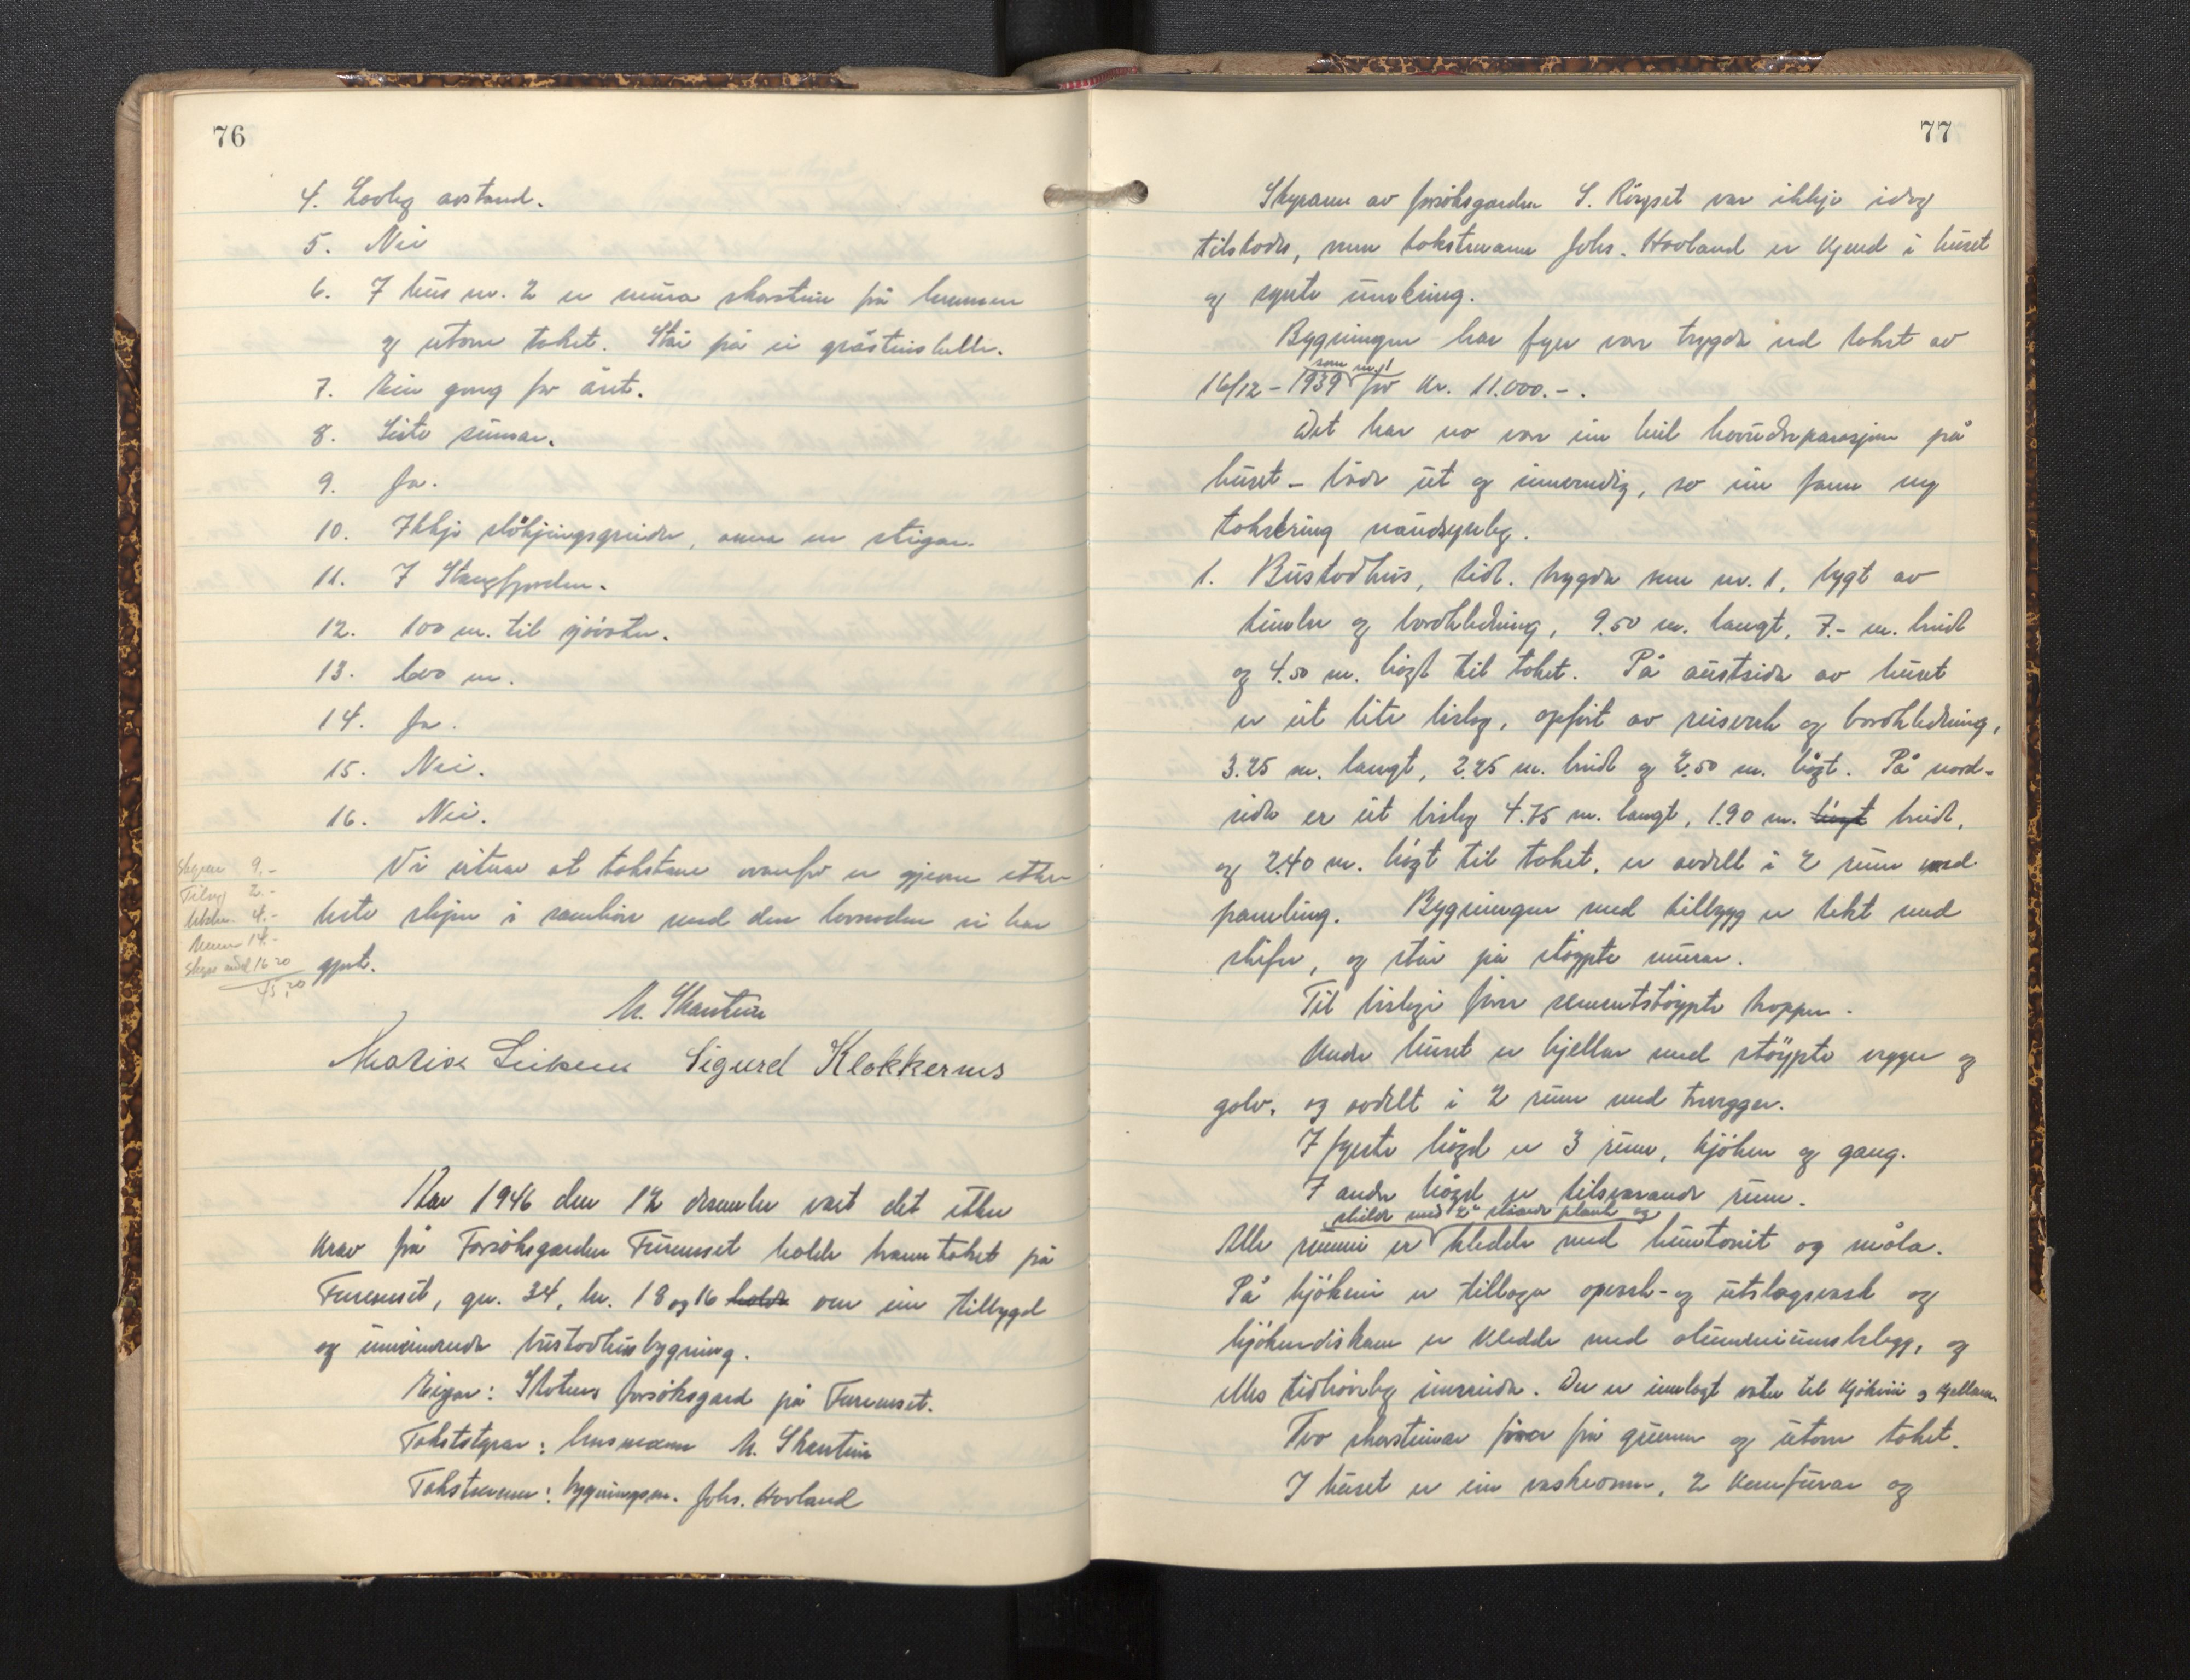 76
4. Lovleg avstand.
5. Nei
6. I hus nr. 2 er mura skorstein frå grunnen
og utom taket. Står på ei gråsteinshelle.
7. Ein gong for året.
8. Siste sumar.
9. Ja.
10. Ikkje sløkjingsgreide, anna en stigar.
11. I Stongfjorden.
12. 100 m. til sjövatn.
13. 600 m.
14. Ja.
15. Nei.
16. Nei.
Vi vitnar at takstane ovanfor er gjevne etter
beste skjøn i samhöve med den lovnaden vi har
gjort.
Skyss 9.-
Tillegg 2.-
4.-
14.-
16 20
45,20
M. Skarstein
Sigurd Klokkernes
År 1946 den 12 desember vart det etter
krav frå Forsöksgarden Fureneset halde branntakst på
Fureneset, gnr. 34, bnr. 18 og 16 halde over ein tilbygd
og umvølande bustadhusbygning.
Eigar: Statens forsöksgard på Fureneset.
Takststyrar: lensmann M. Skarstein
Takstmenn: bygningsm. Johs. Hovland
77
Styraren av forsöksgarden S. Röyset var ikkje idag
tilstades, men takstmann Johs. Hovland er kjend i huset
og synte umkring.
Bygningen har fyrr vore trygda ved takst av
16/12-1939 som nr. 1 for kr. 11.000.-.
Det har no vore ein heil hovudreparasjon på
huset - både ut og innvendig, so ein fann ny
taksering naudsynleg.
1. Bustadhus, tidl. trygda som nr. 1, bygt av
timber og bordkledning, 9.50 m. langt, 7.- m. breidt
og 4.50 m. högt til taket. På austsida av huset
er eit lite bislag, opført av reisverk og bordkledning,
3.25 m. langt, 2.25 m. breidt og 2.50 m. högt. På nord-
sida er eit bislag 4.75 m. langt, 1.90 m. högt breidt,
og 2.40 m. högt til taket, er avdelt i 2 rum med
paneling. Bygningen med tilbygg er tekt med
skifer, og står på stöypte murar.
Til bislagi förer sementstöypte tropper.
Under huset er kjellar med stöypte vegger og
golv, og avdelt i 2 rum med trevegger.
I fyrste högd er 3 rum, kjöken og gang.
I andre högd er tilsvarande rum.
Alle rummi er skilde med 2" ståande plank og kledde med huntonit og måla.
På kjökeni er tillaga oppvask- og utslagsvask og
kjökendisken er kledde med aluminiumsbelegg, og
elles tidhöveleg innreide. Der er innlagt vatn til kjökeni og kjellaren.
Two skorsteinar förer frå grunnen og utom taket.
I huset er ein vaskeomn, 2 komfurar og